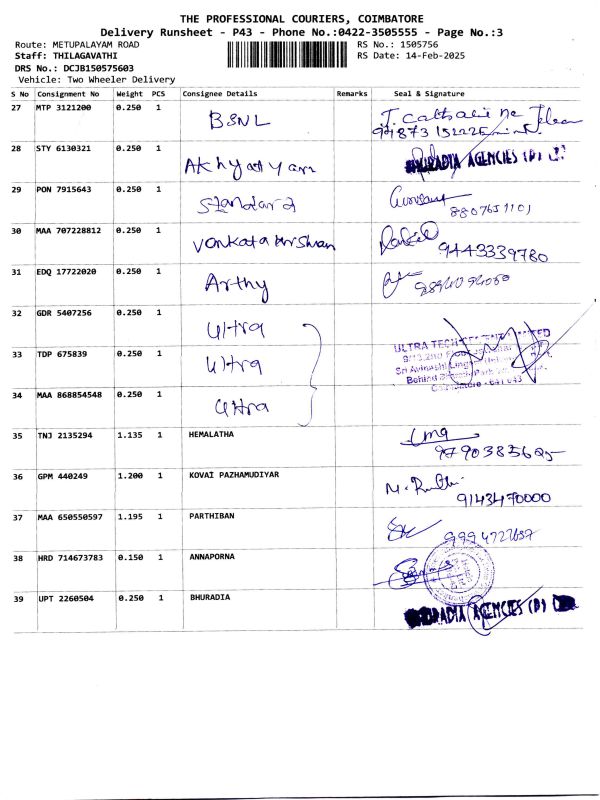 THE PROFESSIONAL COURIERS, COIMBATORE
Delivery Runsheet - P43 - Phone No.:0422-3505555 - Page No.:3
Route: METUPALAYAM ROAD RS No.: 1505756
Staff: THILAGAVATHI RS Date: 14-Feb-2025
DRS No.: DCJB150575603
Vehicle: Two Wheeler Delivery
S No Consignment No Weight PCS Consignee Details Remarks Seal & Signature
27 MTP 3121200 0.250 1 BSNL
28 STY 6130321 0.250 1 AGENCIES (P)
29 PON 7915643 0.250 1 Standard
8807651101
30 MAA 707228812 0.250 1
9443339780
31 EDQ 17722020 0.250 1 Arthy
32 GDR 5407256 0.250 1 Ultra
ULTRA TECH
33 TDP 675839 0.250 1 Ultra
Sri Avinashi
Behind
34 MAA 868854548 0.250 1 Ultra
Coimbatore - 641 043
35 TNJ 2135294 1.135 1 HEMALATHA
36 GPM 440249 1.200 1 KOVAI PAZHAMUDIYAR
9143470000
37 MAA 650550597 1.195 1 PARTHIBAN
38 HRD 714673783 0.150 1 ANNAPORNA
39 UPT 2260504 0.250 1 BHURADIA AGENCIES (P)